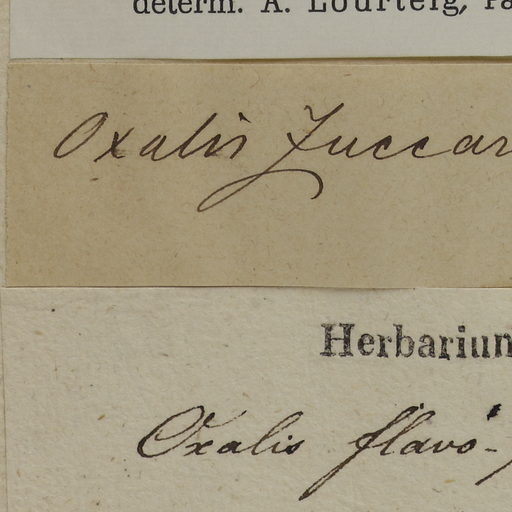 determ. A. Lourteig, Pa
Oxalis Zuccar
Herbarium
Oxalis flavo-